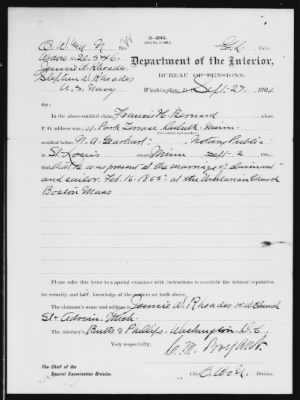 3-291.
Ex'r.
Div.
Department of the Interior,
BUREAU OF PENSIONS,
Jennie D. Rhoades
Stephen D. Rhoades
U.S. Navy
Washington, D. C., Sept. 27, 1904
Sir:
In the above-entitled claim Francis H. Bernard
P. O. address was 4 Park Terrace Duluth Minn.
testified before W. A. Gearhart Notary Public
St. Louis Minn Sept. 2 190
that he was present at the marriage of claimant
and sailor Feb. 16. 1865 at the Unitarian Church
Boston Mass
Please refer this letter to a special examiner with instructions to ascertain the witness' reputation
for veracity, and his knowledge of the matters set forth above.
The claimant's name and address, Jennie D. Rhoades Church
St. Adrian, Mich.
The attorney, Butts & Phillips, Washington, D.C.
Very respectfully,
Chief
The Chief of the
Special Examination Division.